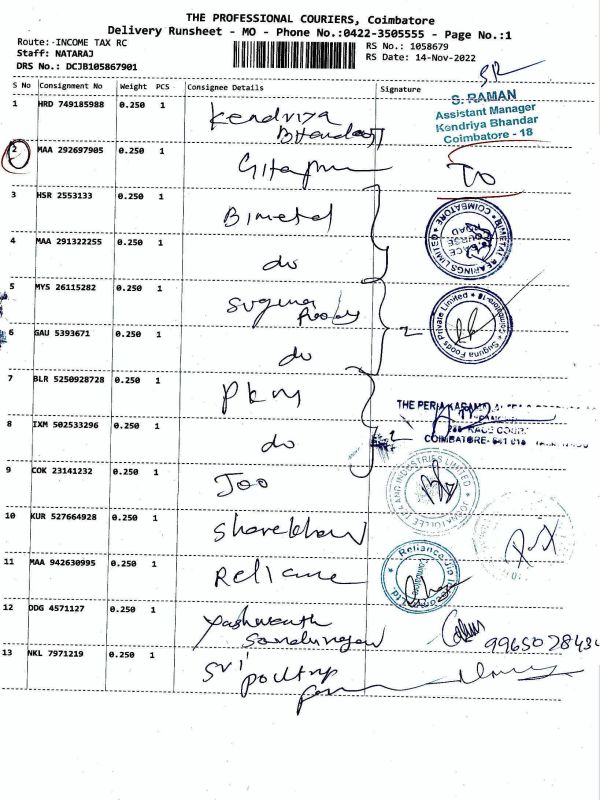 THE PROFESSIONAL COURIERS, Coimbatore
Delivery Runsheet - MO - Phone No.:0422-3505555 - Page No.:1
Route:-INCOME TAX RC
RS No.: 1058679
Staff: NATARAJ
RS Date: 14-Nov-2022
DRS No.: DCJB105867901
S No Consignment No Weight PCS Consignee Details Signature
1 HRD 749185988 0.250 1 Kendriya
Bhandar
S. RAMAN
Assistant Manager
Kendriya Bhandar
Coimbatore - 18
2 MAA 292697905 0.250 1
3 HSR 2553133 0.250 1 Bimetal
BIMETAL BEARINGS LIMITED * COIMBATORE *
RACE COURSE ROAD
4 MAA 291322255 0.250 1 do
5 MYS 26115282 0.250 1 Suguna
Foods
Suguna Foods Private Limited * Coimbatore-18 *
6 GAU 5393671 0.250 1 do 2
7 BLR 5250928728 0.250 1 PKM
8 IXM 502533296 0.250 1 do 2
COIMBATORE- 641 018
9 COK 23141232 0.250 1 Joo
10 KUR 527664928 0.250 1 Sharekhan
11 MAA 942630995 0.250 1 Reliance
12 DDG 4571127 0.250 1 Yashwanth
13 NKL 7971219 0.250 1 Sri
poultry